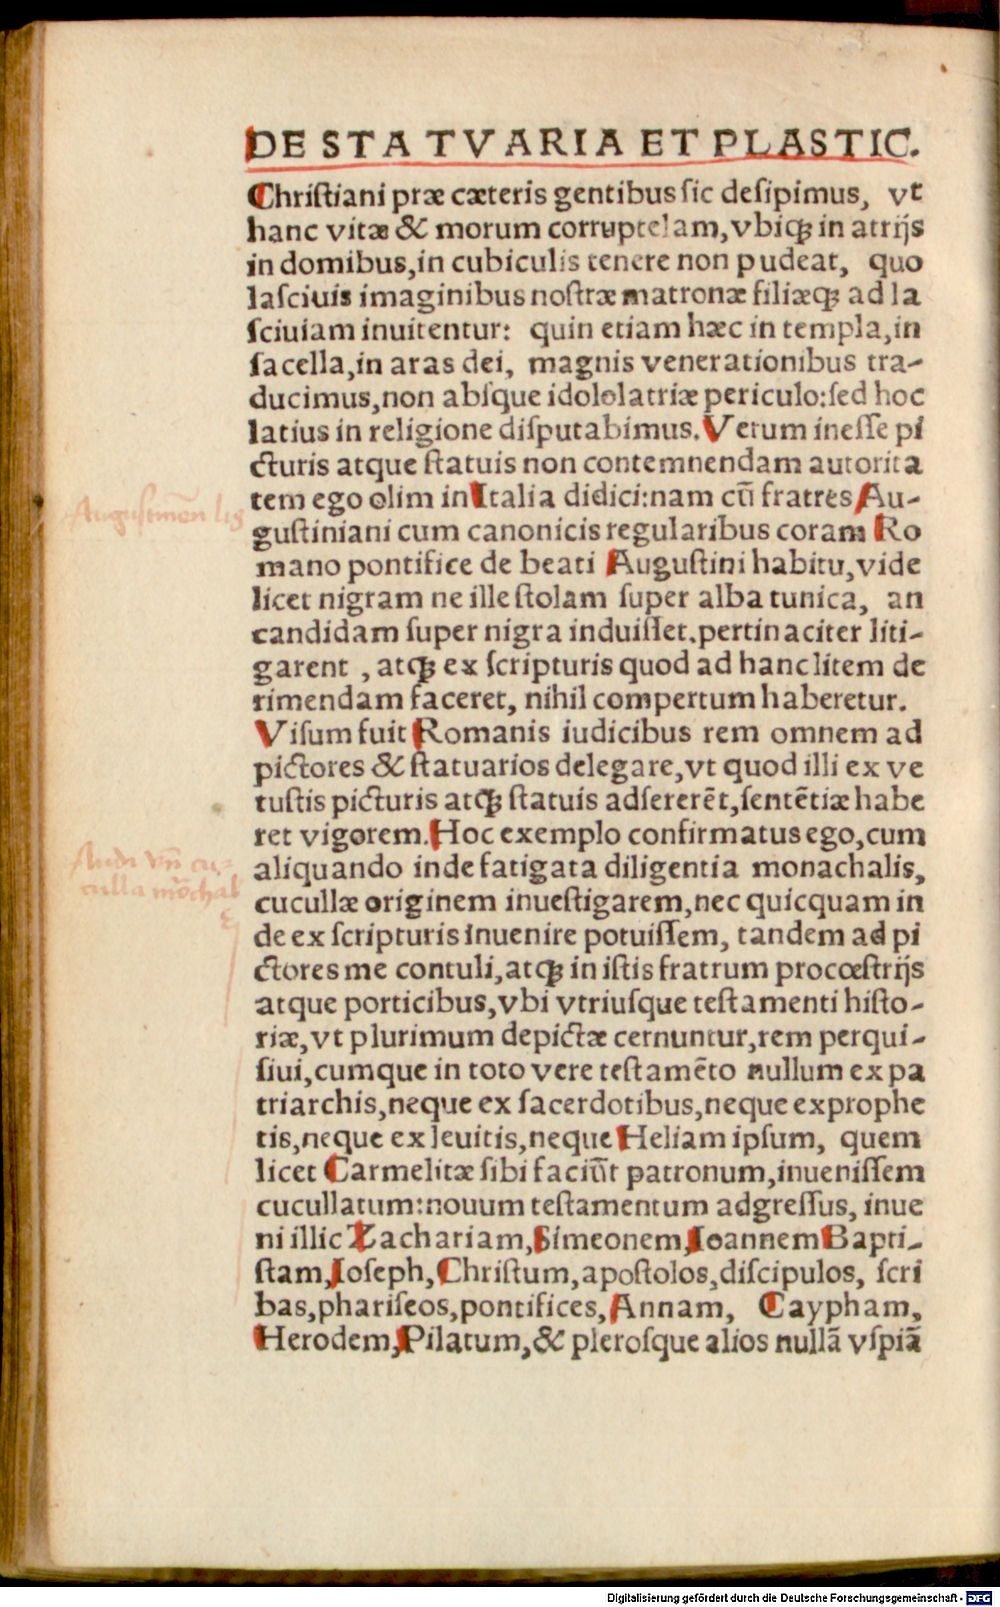 DE STATVARIA ET PLASTIC.
Chriſtiani præ cæteris gentibus ſic deſipimus, vt
hanc vitæ & morum corruptelam, vbiqꝫ in atrijs
in domibus, in cubiculis tenere non pudeat, quo
laſciuis imaginibus noſtræ matronæ filiæqꝫ ad la
ſciuiam inuitentur: quin etiam hæc in templa, in
ſacella, in aras dei, magnis venerationibus tra-
ducimus, non abſque idololatriæ periculo: ſed hoc
latius in religione diſputabimus. Verum ineſſe pi
cturis atque ſtatuis non contemnendam autorita
tem ego olim in Italia didici: nam cū fratres Au-
Auguſtinēn lis
guſtiniani cum canonicis regularibus coram Ro
mano pontifice de beati Auguſtini habitu, vide
licet nigram ne ille ſtolam ſuper alba tunica, an
candidam ſuper nigra induiſſet. pertinaciter liti-
garent, atqꝫ ex ſcripturis quod ad hanc litem de
rimendam faceret, nihil compertum haberetur.
Viſum fuit Romanis iudicibus rem omnem ad
pictores & ſtatuarios delegare, vt quod illi ex ve
tuſtis picturis atqꝫ ſtatuis adſererēt, ſentētiæ habe
ret vigorem. Hoc exemplo confirmatus ego, cum
aliquando inde fatigata diligentia monachalis,
cuculla
cucullæ originem inueſtigarem, nec quicquam in
de ex ſcripturis inuenire potuiſſem, tandem ad pi
ctores me contuli, atqꝫ in iſtis fratrum procœſtrijs
atque porticibus, vbi vtriuſque teſtamenti hiſto-
riæ, vt plurimum depictæ cernuntur, rem perqui-
ſiui, cumque in toto vere teſtamēto nullum ex pa
triarchis, neque ex ſacerdotibus, neque ex prophe
tis, neque ex leuitis, neque Heliam ipſum, quem
licet Carmelitæ ſibi faciūt patronum, inueniſſem
cucullatum: nouum teſtamentum adgreſſus, inue
ni illic Zachariam, Simeonem, Ioannem Bapti-
ſtam, Ioſeph, Chriſtum, apoſtolos, diſcipulos, ſcri
bas, phariſeos, pontifices, Annam, Caypham,
Herodem, Pilatum, & pleroſque alios nullā vſpiā
Digitalisierung gefördert durch die Deutsche Forschungsgemeinschaft - DFG